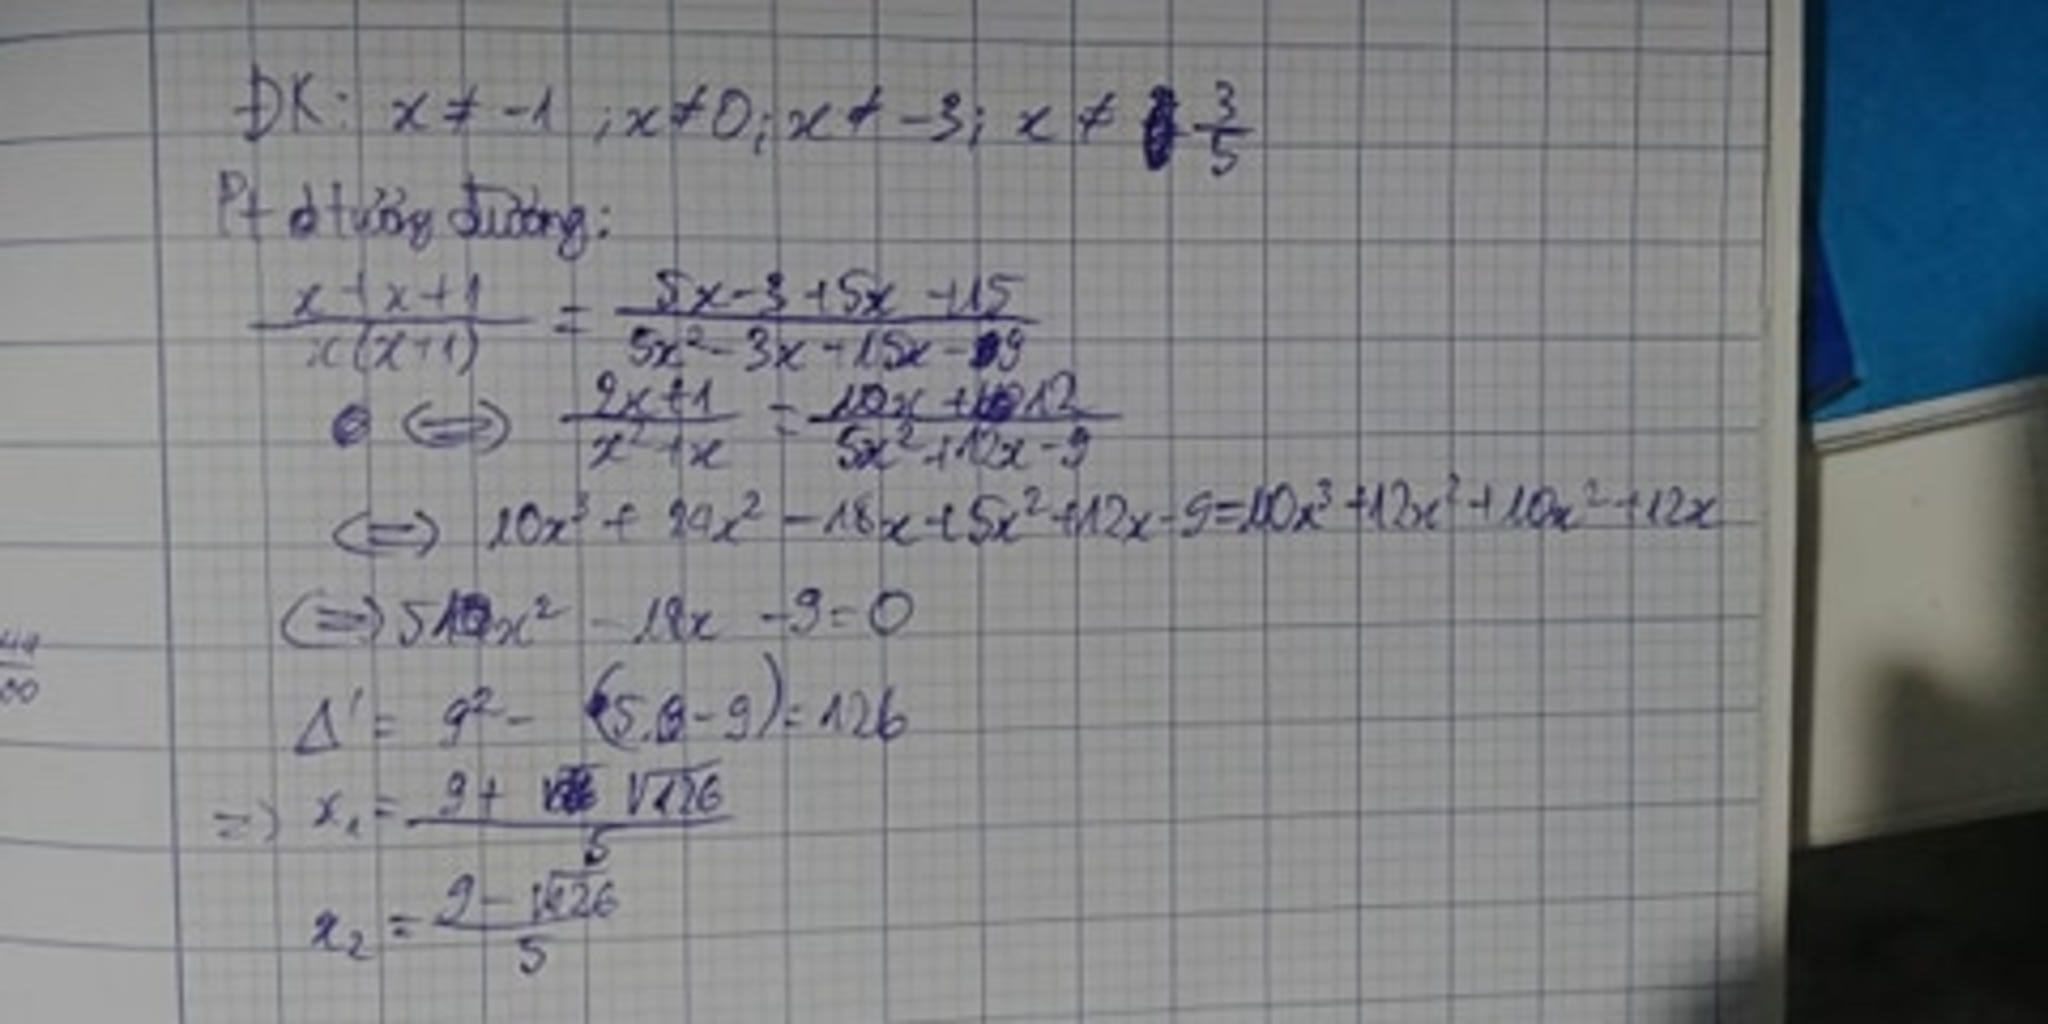 ĐK: x ≠ -1 ; x ≠ 0; x ≠ -3; x ≠ 3/5
Pt tương đương:
(x + x + 1)/(x(x+1)) = (5x - 3 + 5x + 15)/(5x² - 3x + 15x - 9)
(=) (2x+1)/(x²+x) = (10x + 12)/(5x² + 12x - 9)
(=) 10x³ + 24x² - 18x + 5x² + 12x - 9 = 10x³ + 12x² + 10x² + 12x
(=) 5x² - 18x - 9 = 0
44
00
Δ' = 9² - (5.-9) = 126
=) x₁ = (9 + √126)/5
x₂ = (9 - √126)/5